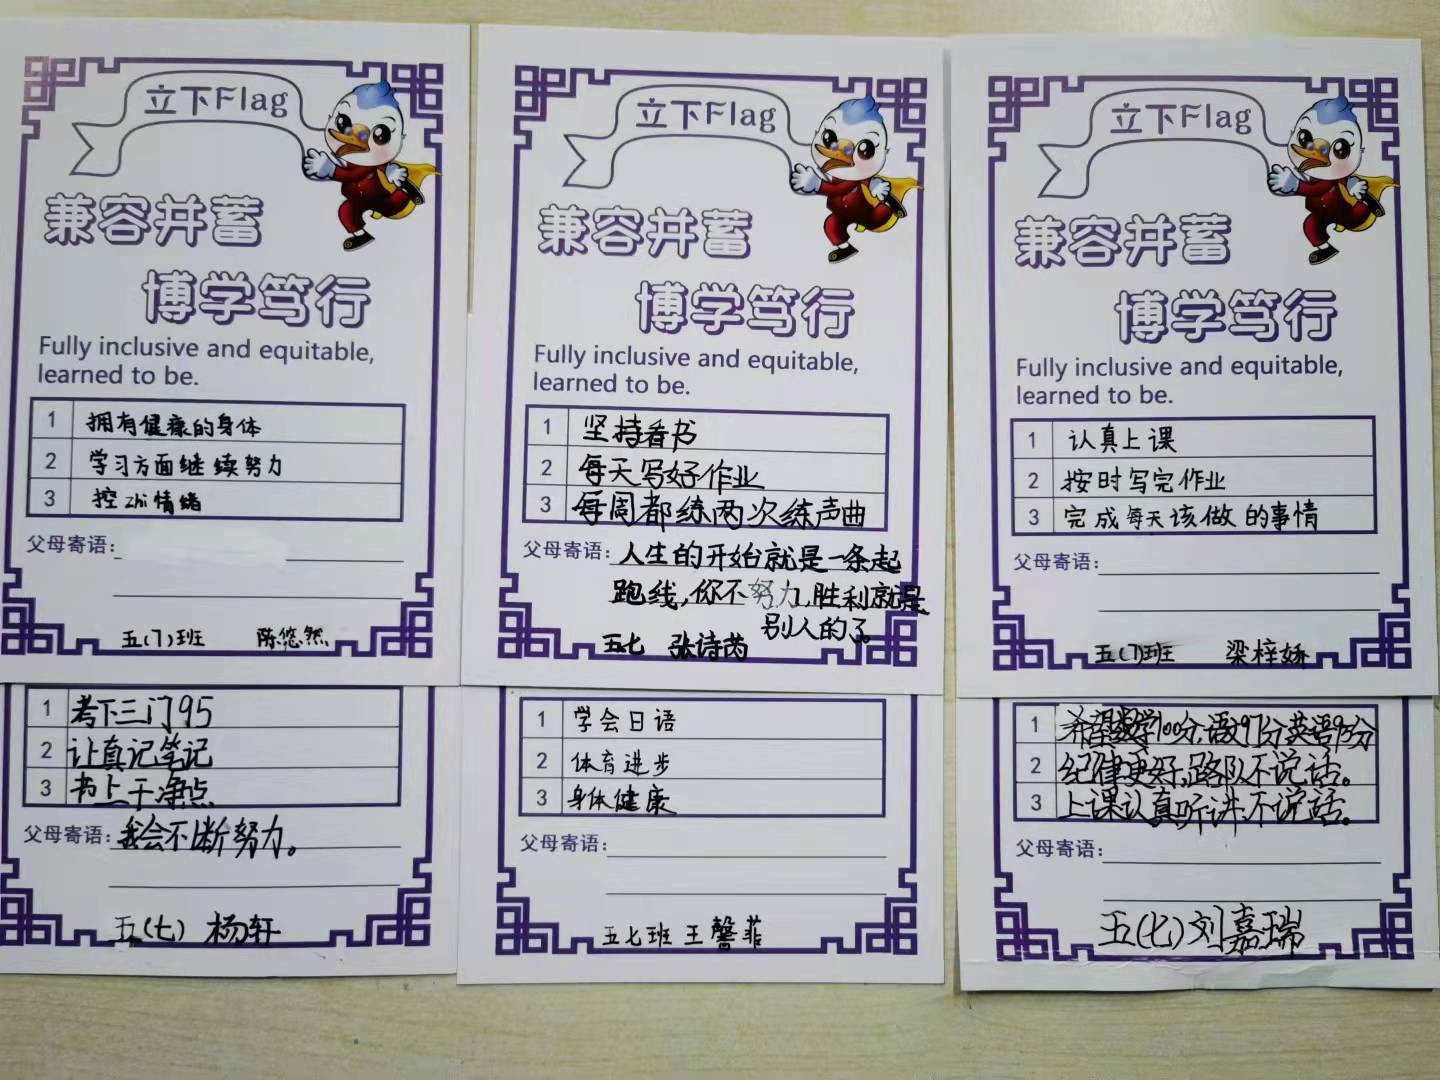 立下Flag
兼容并蓄
博学笃行
Fully inclusive and equitable,
learned to be.
1 拥有健康的身体
2 学习方面继续努力
3 控zhi情绪
父母寄语:
五(7)班 陈悠然
立下Flag
兼容并蓄
博学笃行
Fully inclusive and equitable,
learned to be.
1 坚持看书
2 每天写好作业
3 每周都练两次练声曲
父母寄语: 人生的开始就是一条起
跑线,你不努力,胜利就是
别人的了。
五七 张诗芮
立下Flag
兼容并蓄
博学笃行
Fully inclusive and equitable,
learned to be.
1 认真上课
2 按时写完作业
3 完成每天该做的事情
父母寄语:
五(7)班 梁梓娇
1 考下三门95
2 让真记笔记
3 书上干净点
父母寄语: 我会不断努力。
五(七) 杨轩
1 学会日语
2 体育进步
3 身体健康
父母寄语:
五七班 王馨菲
1 希望数学100分,语文97分英语93分
2 纪律更好,路队不说话。
3 上课认真听讲,不说话。
父母寄语:
五(七)刘嘉瑞